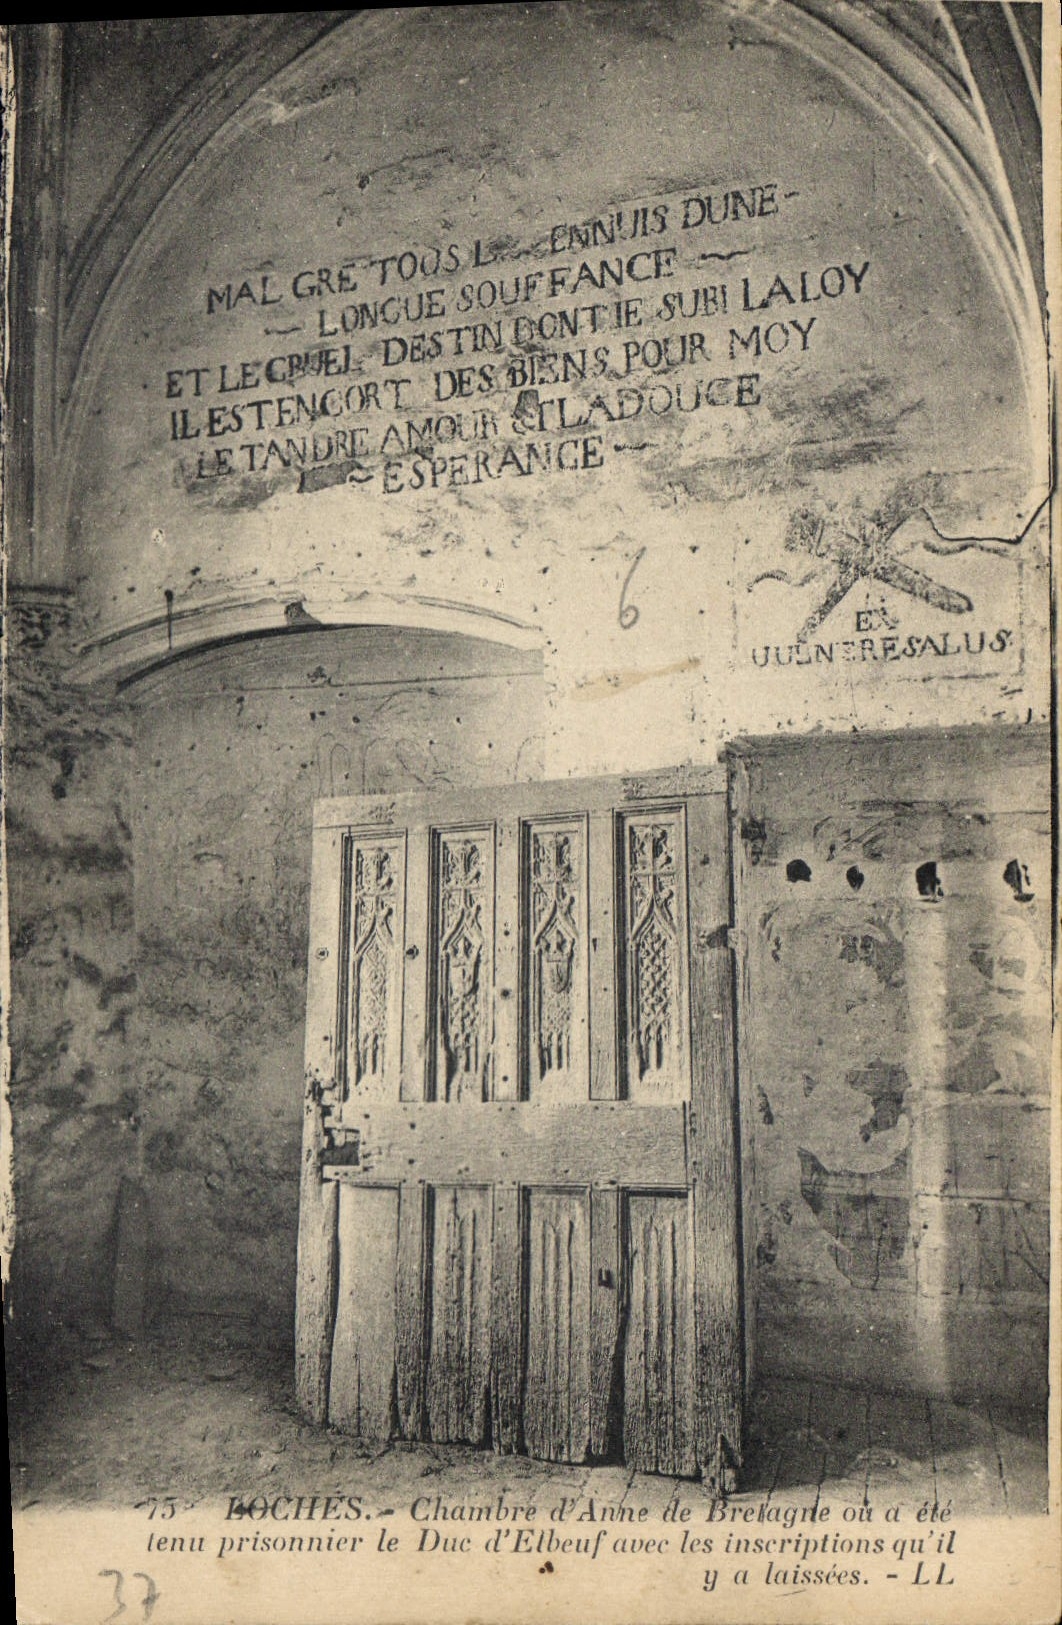 MALGRE TOUS L ENNUIS DUNE-
LONGUE SOUFFANCE
ET LE CRUEL DESTIN DONT IE SUBI LA LOY
IL EST ENCORT DES BIENS POUR MOY
LE TANDRE AMOUR & LA DOUCE
ESPERANCE
6
EX
UULNERE SALUS
75 LOCHES. - Chambre d'Anne de Bretagne où a été
tenu prisonnier le Duc d'Elbeuf avec les inscriptions qu'il
y a laissées. - LL
37